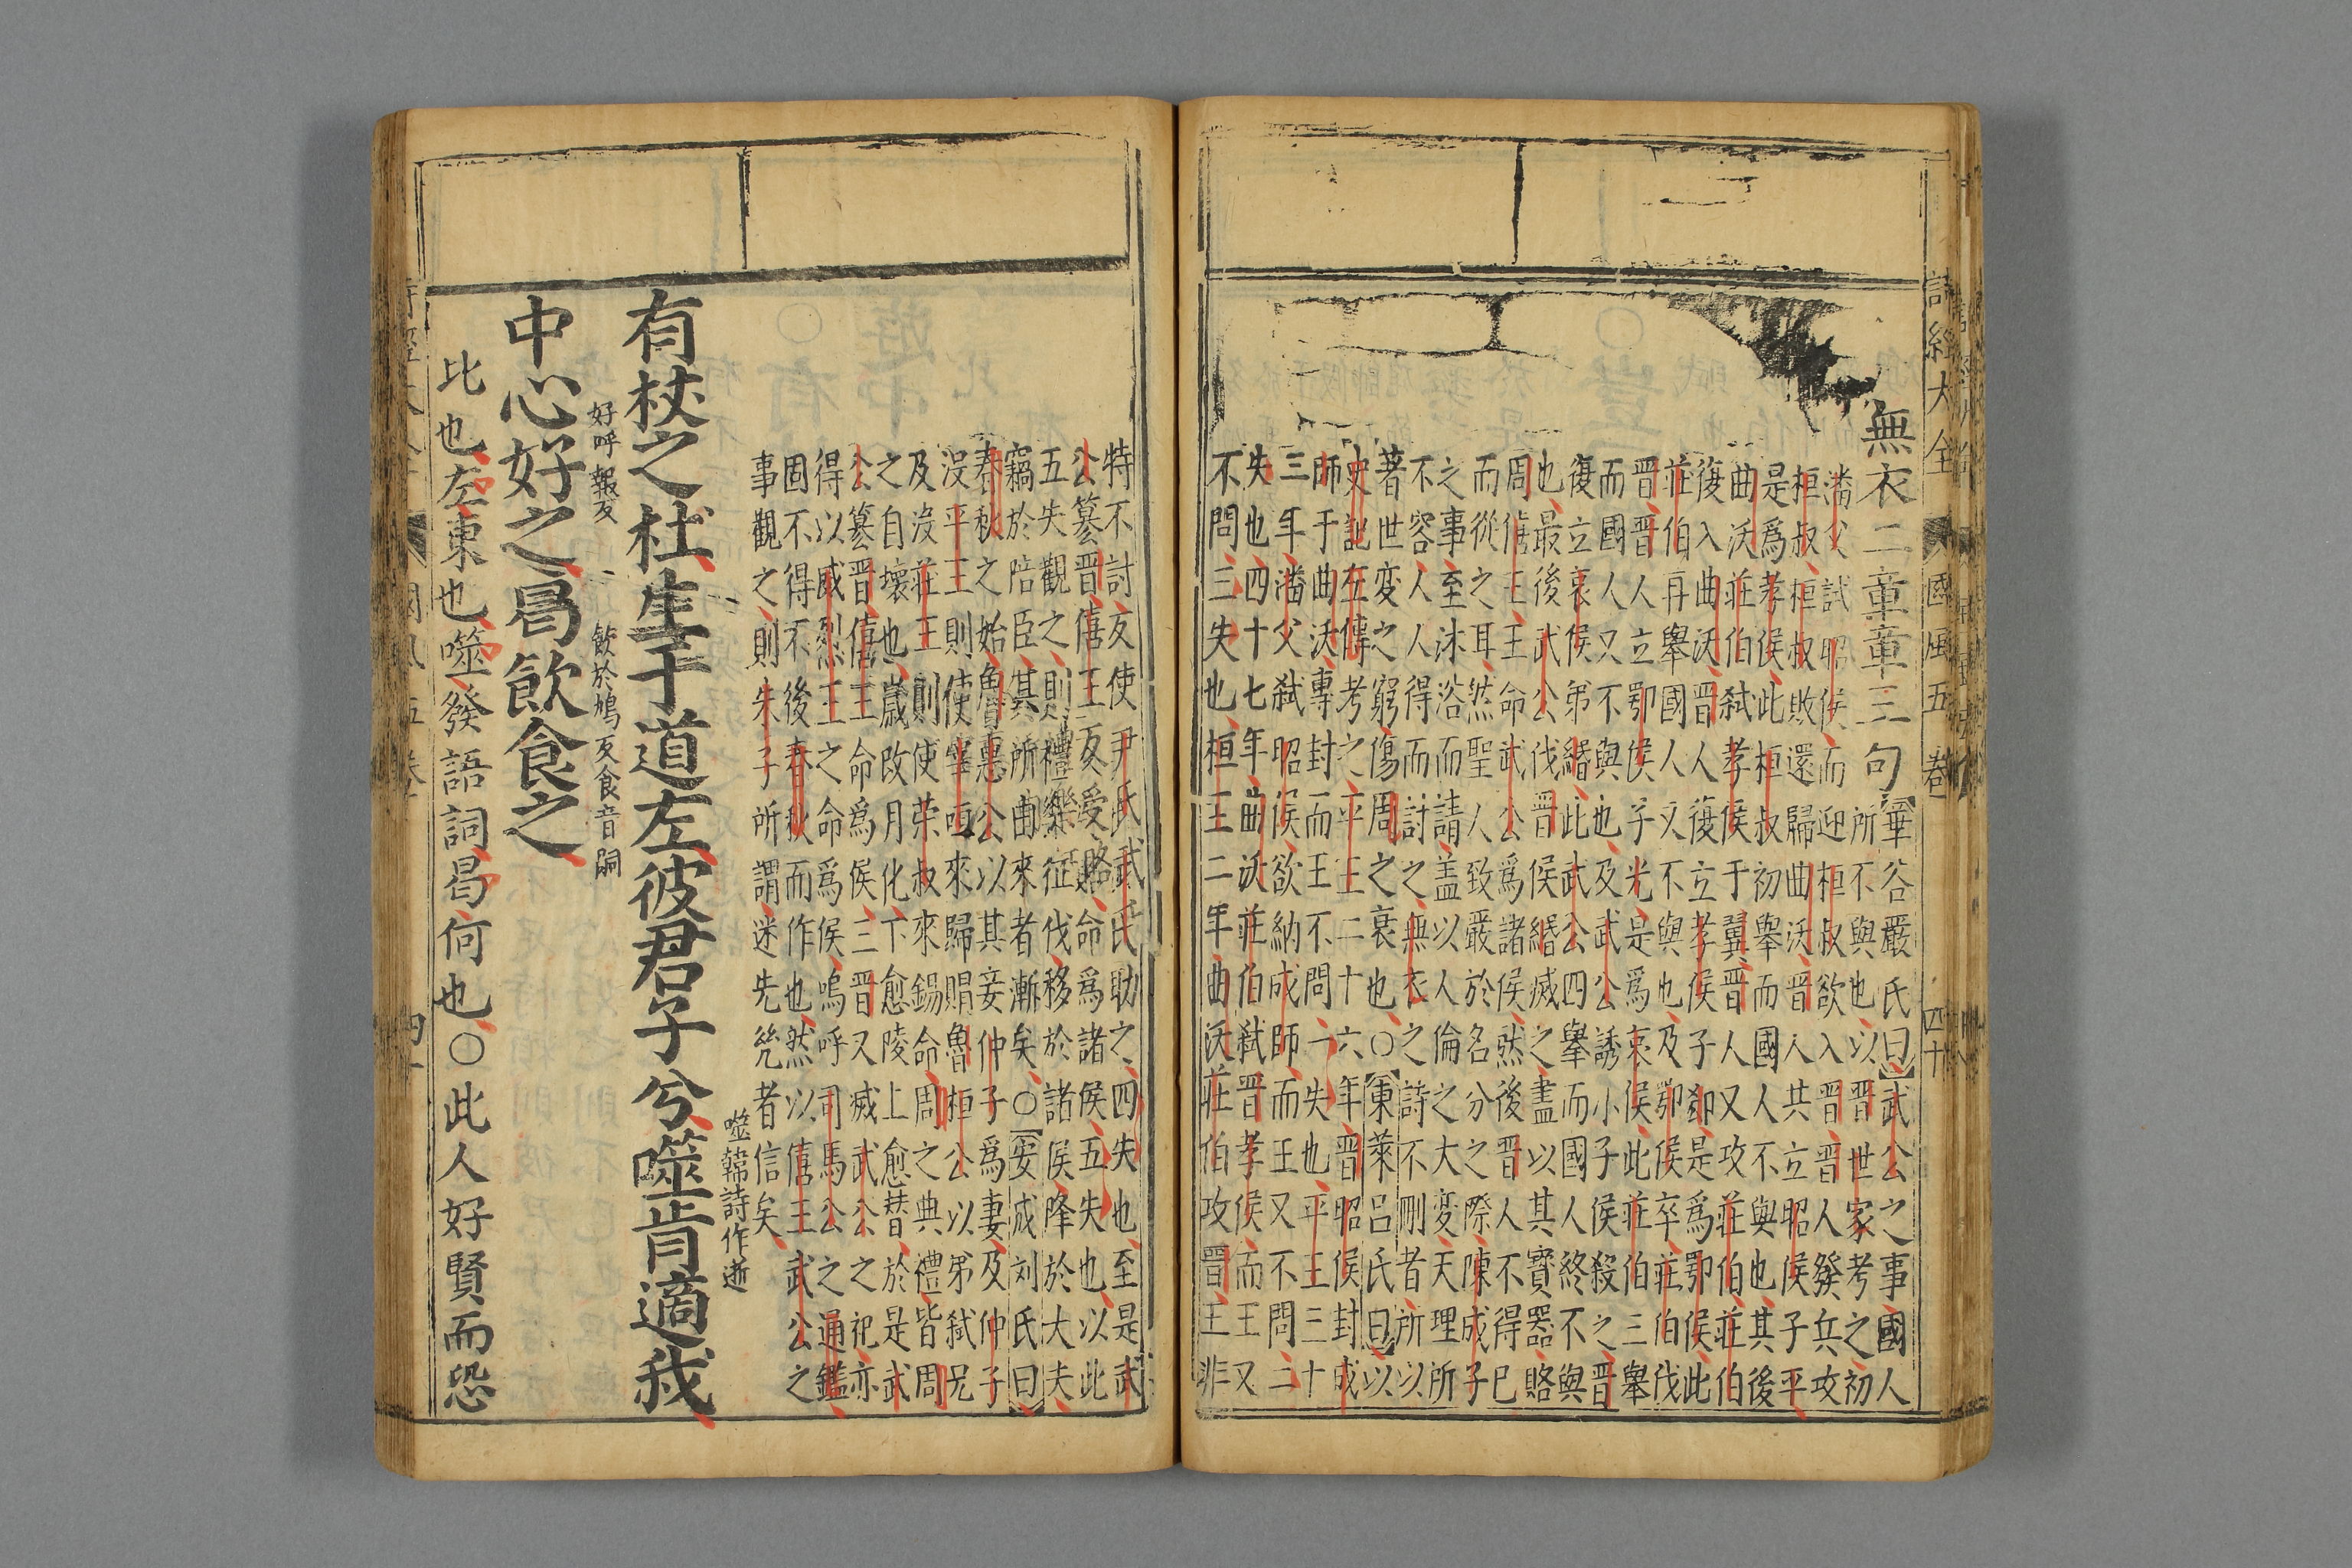 詩經大全
國風五卷
四十
無衣二章章三句
華谷嚴氏曰武公之事國人
所不與也以晉世家考之初
潘父試昭侯而迎桓叔欲入晉晉人發兵攻
桓叔桓叔敗還歸曲沃晉人共立昭侯子平
是爲孝侯此桓叔初舉而國人不與也其後
曲沃莊伯弑孝侯于翼晉人又攻莊伯莊伯
復入曲沃晉人復立孝侯子郤是爲鄂侯此
莊伯再舉國人又不與也及鄂侯卒莊伯伐
晉晉人立鄂侯子光是爲哀侯此莊伯三舉
而國人又不與也及武公誘小子侯殺之晉
復立哀侯弟緡此武公四舉而國人終不與
也最後武公伐晉侯緡滅之盡以其寶器賂
周僖王王命武公爲諸侯然後晉人不得已
而從之耳然聖人致嚴於名分之際陳成子
之事至沐浴而請盖以人倫之大變天理所
不容人人得而討之無衣之詩不刪者所以
著世変之窮傷周之衰也○東萊呂氏曰以
史記左傳考之平王二十六年晉昭侯封成
師于曲沃專封而王不問一失也平王三十
三年潘父弑昭侯欲納成師而王又不問二
失也四十七年曲沃莊伯弑晉孝侯而王又
不問三失也桓王二年曲沃莊伯攻晉王非
特不討反使尹氏武氏助之四失也至是武
公簒晉僖王反受賂命爲諸侯五失也以此
五失觀之則禮樂征伐移於諸侯降於大夫
竊於陪臣其所由來者漸矣○安成刘氏曰
春秋之始魯惠公以其妾仲子爲妻及仲子
没平王則使宰咺來歸賵魯桓公以弟弑兄
及没莊王則使荣叔來錫命周之典禮皆周
之自壞也歲改月化下愈陵上愈替於是武
公簒晉僖王命爲侯三晉又滅武公之祀亦
得以威烈王之命爲侯嗚呼司馬公之通鑑
固不得不後春秋而作也然以僖王武公之
事觀之則朱子所謂迷先兆者信矣
噬韓詩作逝
有杕之杜生于道左彼君子兮噬肯適我
好呼報反
飮於鳩反食音嗣
中心好之曷飮食之
比也左東也噬發語詞曷何也○此人好賢而恐